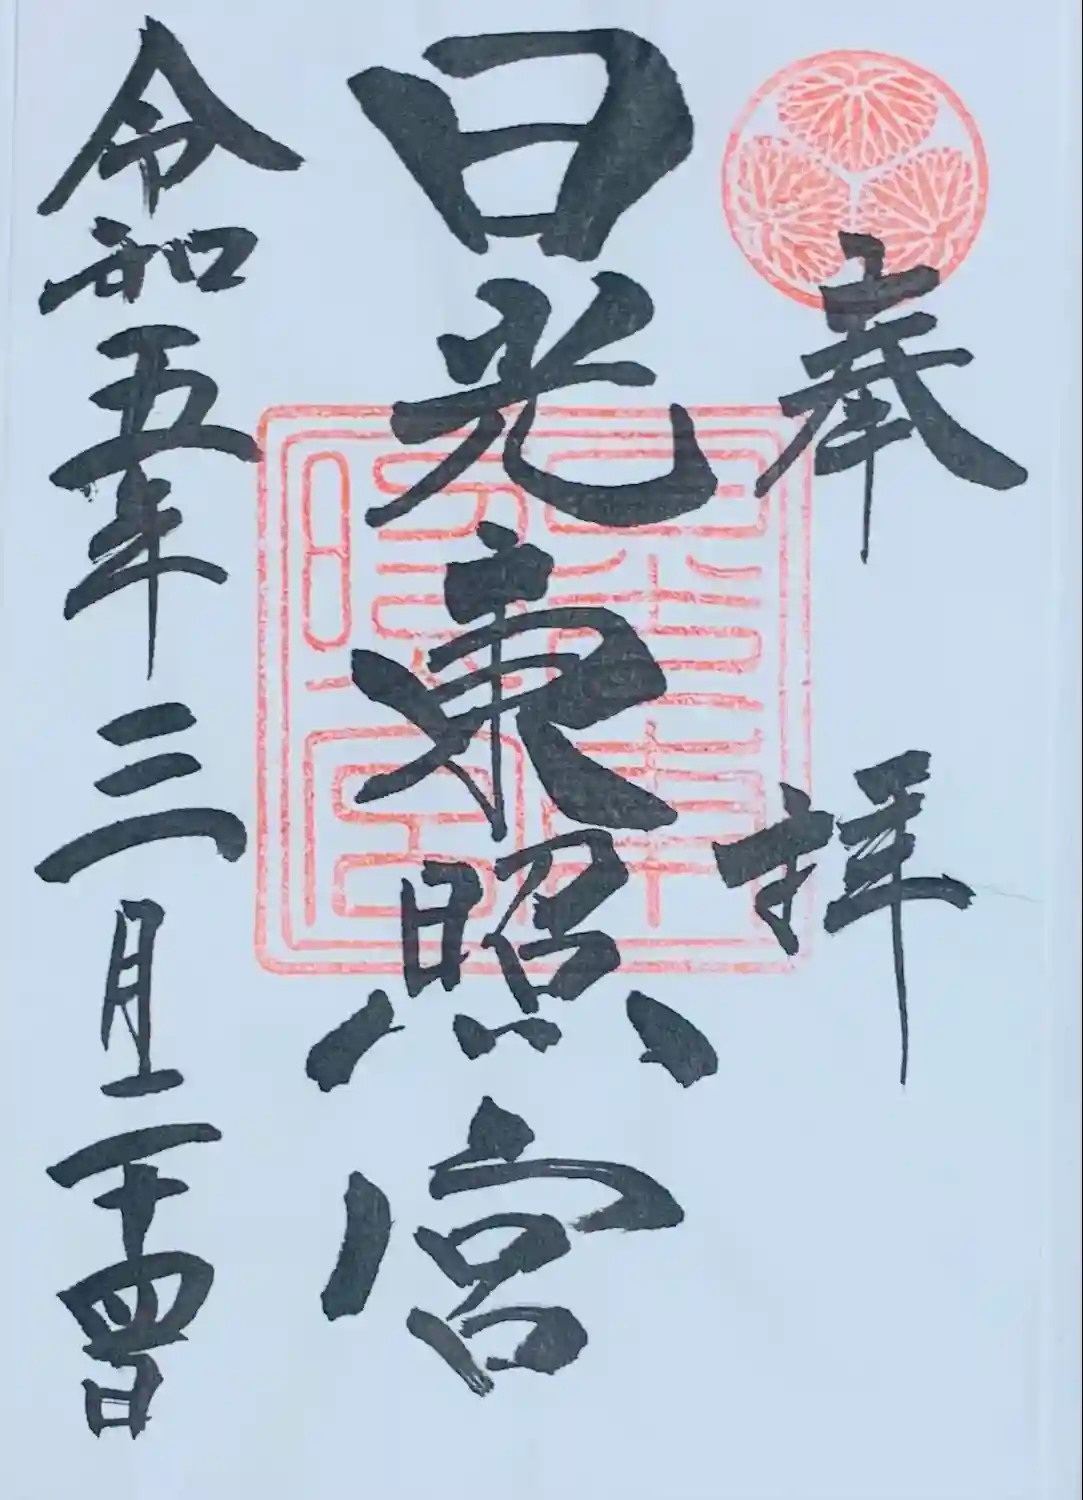 奉拝
日光東照宮
令和五年三月二十四日